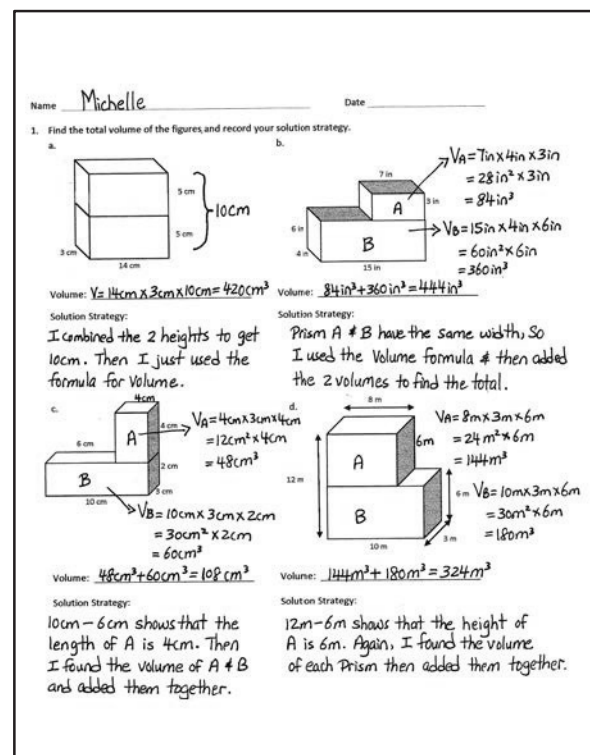 Name Michelle Date
1. Find the total volume of the figures, and record your solution strategy.
a.
5 cm
5 cm
10cm
3 cm
14 cm
Volume: V= 14cm x 3cm x 10cm = 420cm³
Solution Strategy:
I combined the 2 heights to get
10cm. Then I just used the
formula for volume.
b.
7 in
3 in
A
6 in
B
4 in
15 in
VA = 7in x 4in x 3in
= 28in² x 3in
= 84in³
VB = 15in x 4in x 6in
= 60in² x 6in
= 360in³
Volume: 84in³ + 360in³ = 444in³
Solution Strategy:
Prism A & B have the same width, so
I used the volume formula & then added
the 2 volumes to find the total.
c.
4cm
4 cm
A
6 cm
2 cm
B
3 cm
10 cm
VA = 4cm x 3cm x 4cm
= 12cm² x 4cm
= 48cm³
VB = 10cm x 3cm x 2cm
= 30cm² x 2cm
= 60cm³
Volume: 48cm³ + 60cm³ = 108cm³
Solution Strategy:
10cm - 6cm shows that the
length of A is 4cm. Then
I found the volume of A & B
and added them together.
d.
8 m
6m
A
12 m
6 m
B
3 m
10 m
VA = 8m x 3m x 6m
= 24m² x 6m
= 144m³
VB = 10m x 3m x 6m
= 30m² x 6m
= 180m³
Volume: 144m³ + 180m³ = 324m³
Solution Strategy:
12m - 6m shows that the height of
A is 6m. Again, I found the volume
of each Prism then added them together.